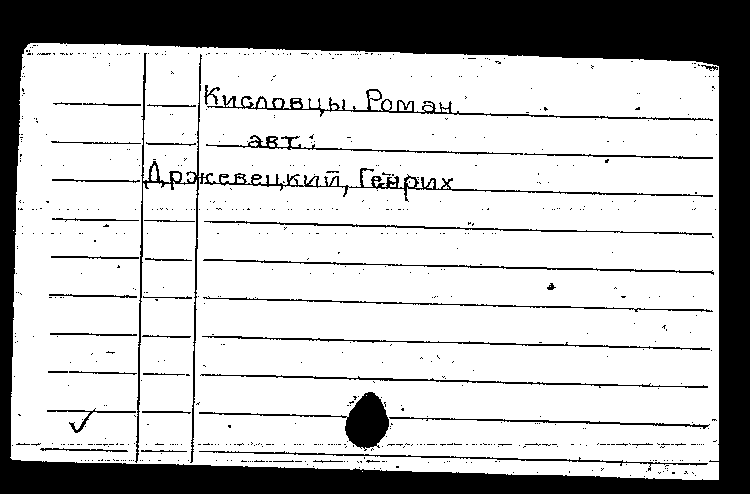 Кисловцы. Роман.
авт.:
Држевецкий, Генрих